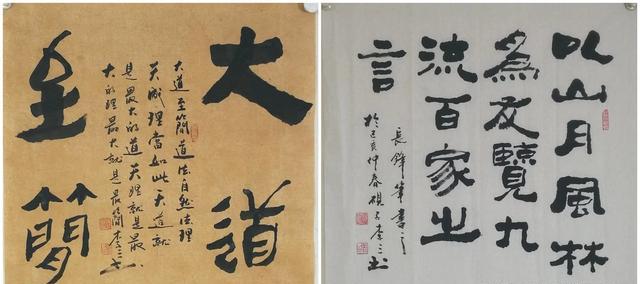 大道
大道至簡道法自然法理
天成理當如此天道就
是最大的道天理就是最
大的理最大就是最簡李三书
至簡
以山月風林
為友覽九
流百家之
言
長鋒筆書之
於己亥仲春硯李三书